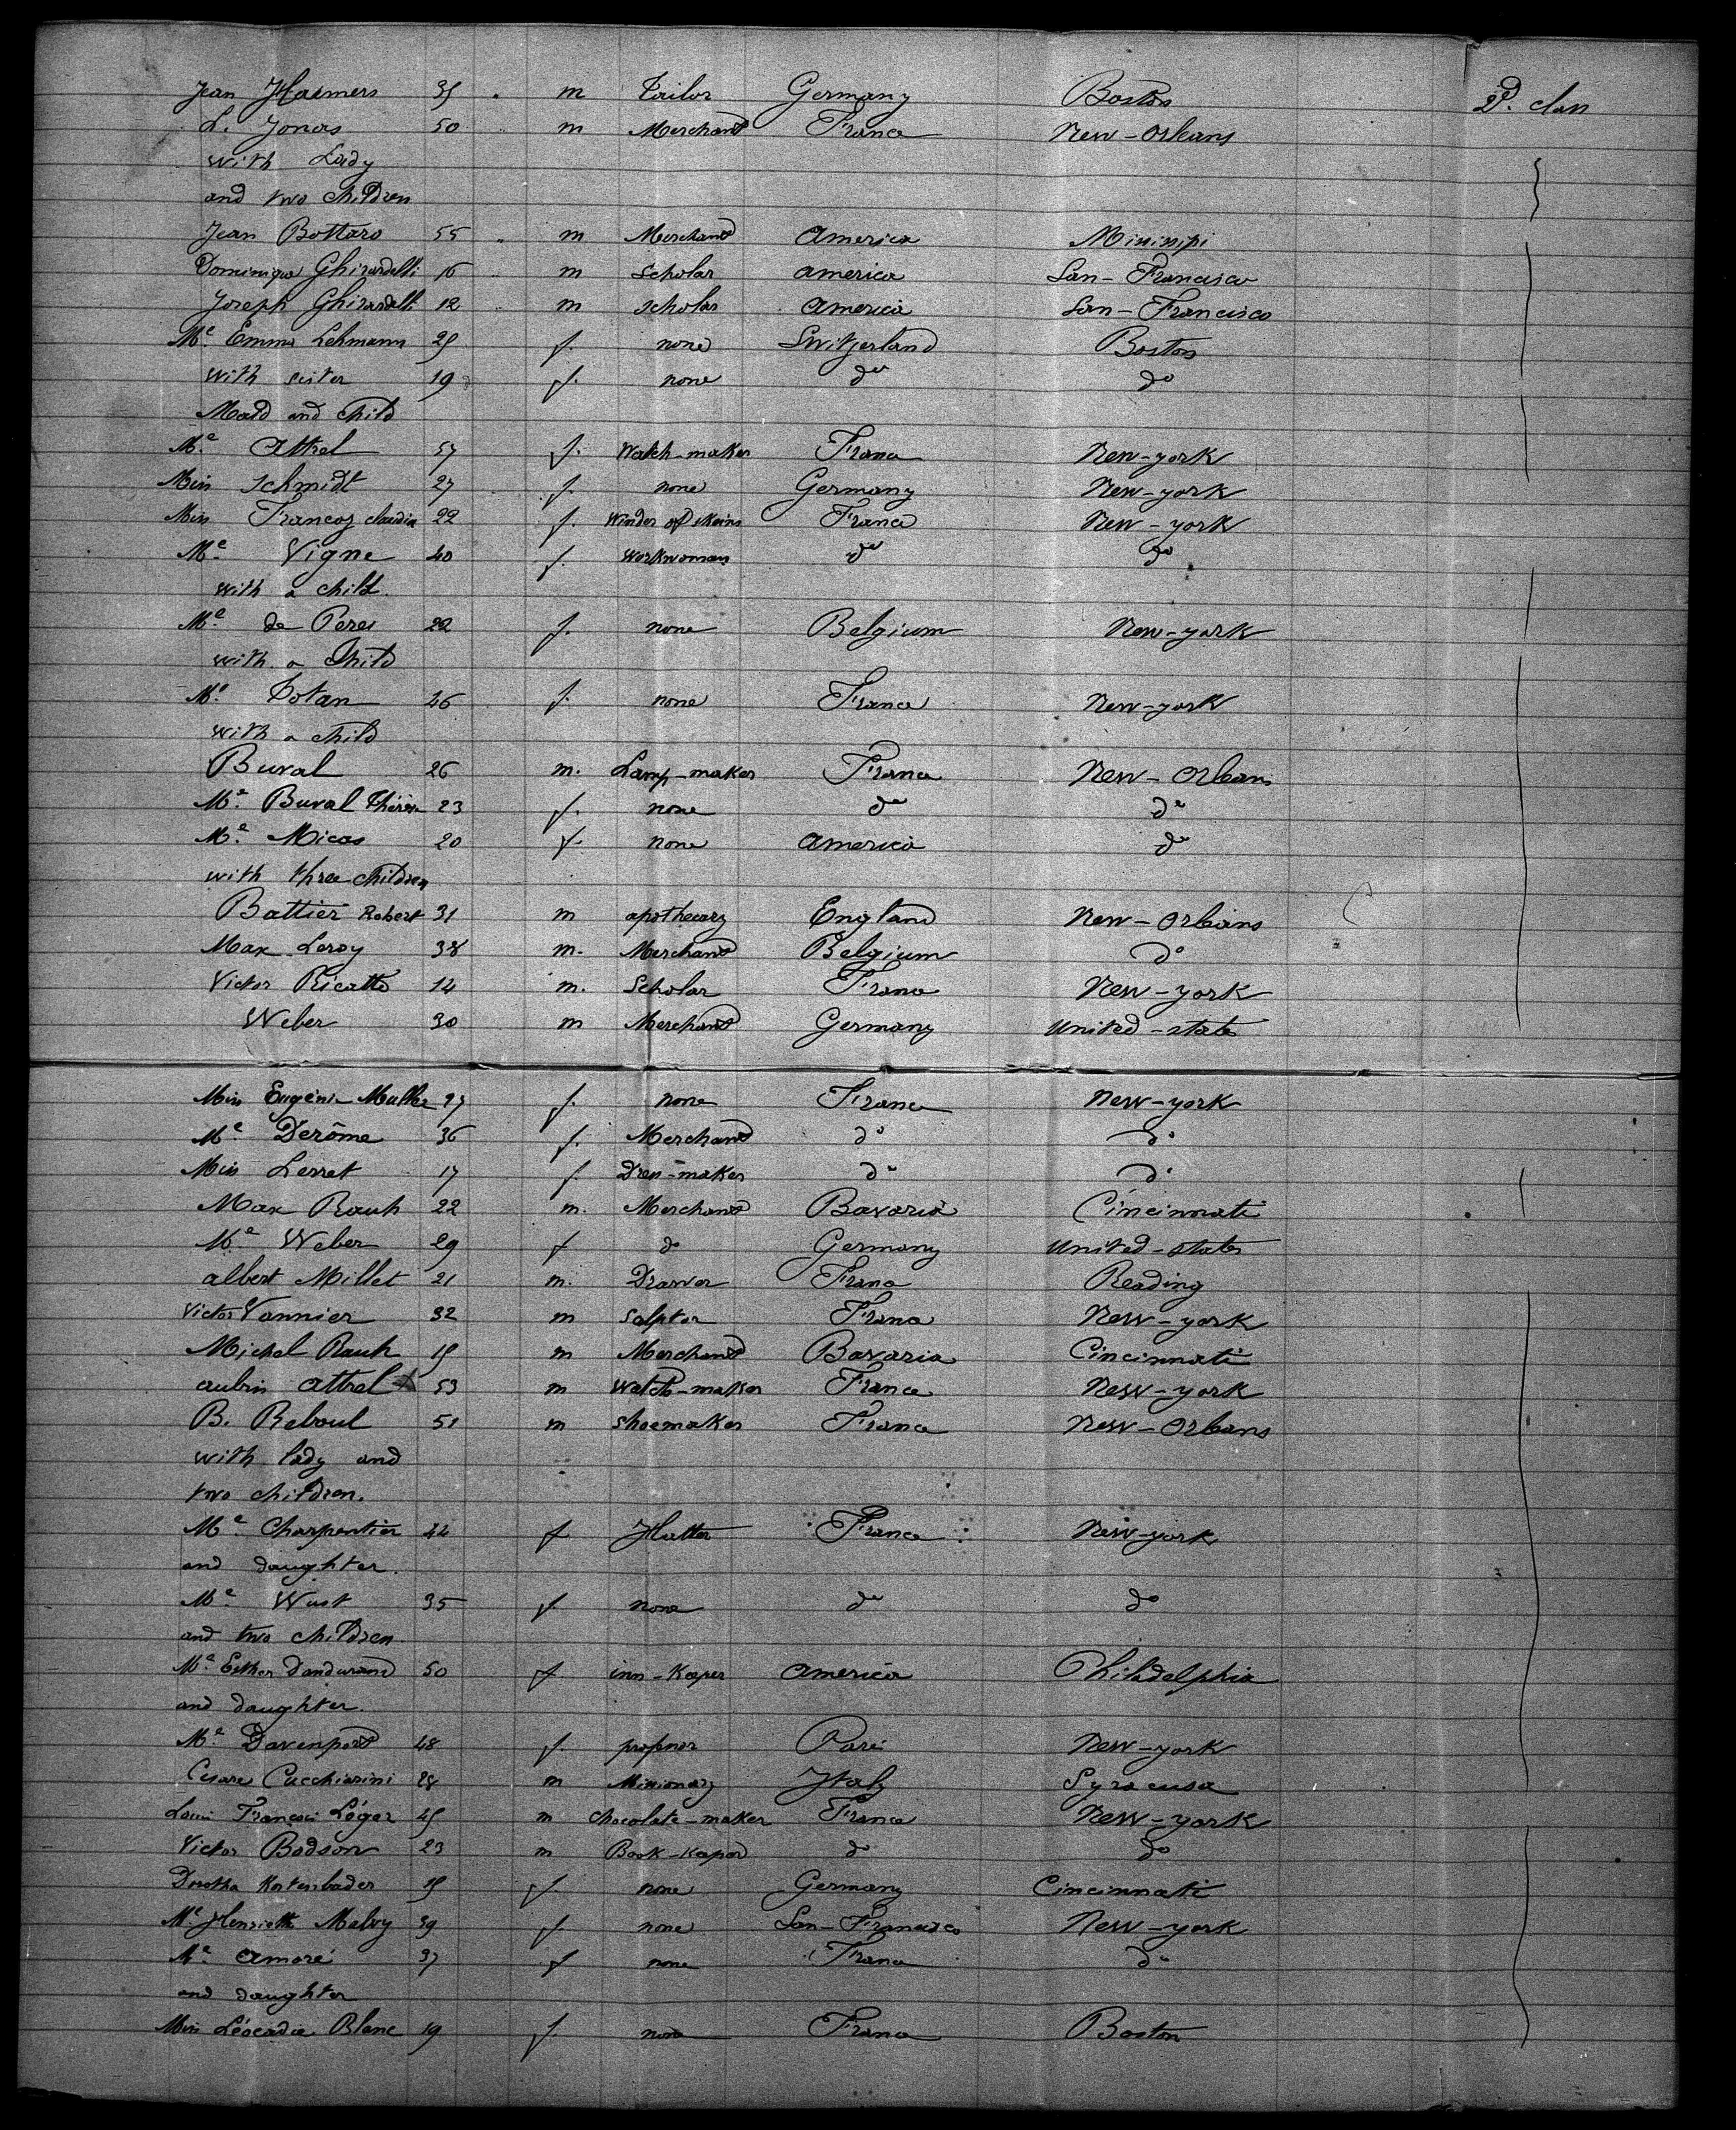 Jean Haemers 35 " m Tailor Germany Boston 2d. class
L. Jonas 50 " m Merchand France New-Orleans
with Lady
and two children
Jean Bottaro 55 " m Merchand America Missisipi
Dominique Ghirardelli 16 " m Scholar America San-Francisco
Joseph Ghirardelli 12 " m Scholar America San-Francisco
Me. Emma Lehmann 25 f. none Switzerland Boston
with sister 19 f. none do do
Maid and child
Me. Attrel 57 f. Watch-maker France New-york
Miss Schmidt 27 f. none Germany New-york
Miss Francoz Claudia 22 f. Winder of skeins France New-york
Me. Vigne 40 f. Workwoman do do
with a child.
Me. de Perei 22 f. none Belgium New-york
with a Child
Me. Totan 46 f. none France New-york
with a child
Buval 26 m. Lamp-maker France New-Orleans
Me. Buval Thérèse 23 f. none do do
Me. Micas 20 f. none America do
with three children
Battier Robert 31 m apothecary England New-Orleans
Max Leroy 38 m. Merchand Belgium do
Victor Ricatto 14 m. Scholar France New-york
Weber 30 m Merchand Germany United-states
Miss Eugénie Muller 27 f. none France New-york
Me. Derôme 36 f. Merchand do do
Miss Lerret 17 f. Dress-maker do do
Max Rauh 22 m. Merchand Bavaria Cincinnati
Me. Weber 29 f do Germany United-states
albert Millet 21 m. Drawer France Reading
Victor Vannier 32 m Sculptor France New-york
Michel Rauh 15 m Merchand Bavaria Cincinnati
aubin attrel 53 m Watch-maker France New-york
B. Reboul 51 m Shoemaker France New-Orleans
with lady and
two children.
Me. Charpentier 42 f Hatter France New-york
and daughter.
Me. Wust 35 f none do do
and two children.
Me. Esther Dandurand 50 f inn-Keper America Philadelphia
and daughter.
Me. Davenport 48 f. professor Paris New-york
Cesare Cucchiarini 28 m Missionary Italy Syracusa
Louis François Léger 45 m Chocolate-maker France New-york
Victor Bodson 23 m Book-Keeper do do
Dorotha Kortenbader 15 f. none Germany Cincinnati
Me. Henriette Malvy 39 f. none San-Francisco New-york
Me. Amoré 37 f none France do
and daughter
Miss Léocadie Blanc 19 f. none France Boston